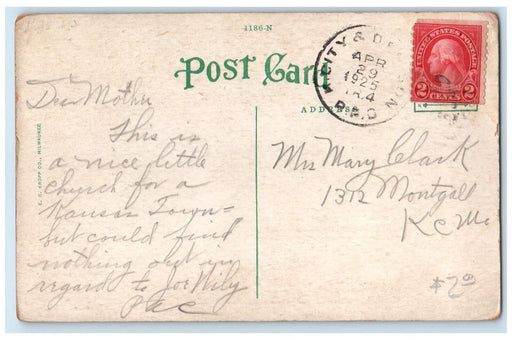 4186-N
Post Card
ADDRESS
CITY & D
APR
29
1925
R.P.O.
UNITED STATES POSTAGE
2 CENTS 2
Dear Mother
This is
a nice little
church for a
Kansas Town-
but could find
nothing out in
regard to Joe
PAC
Mrs Mary Clark
1312 Montgall
K C Mo
$7.00
E. C. KROPP CO., MILWAUKEE